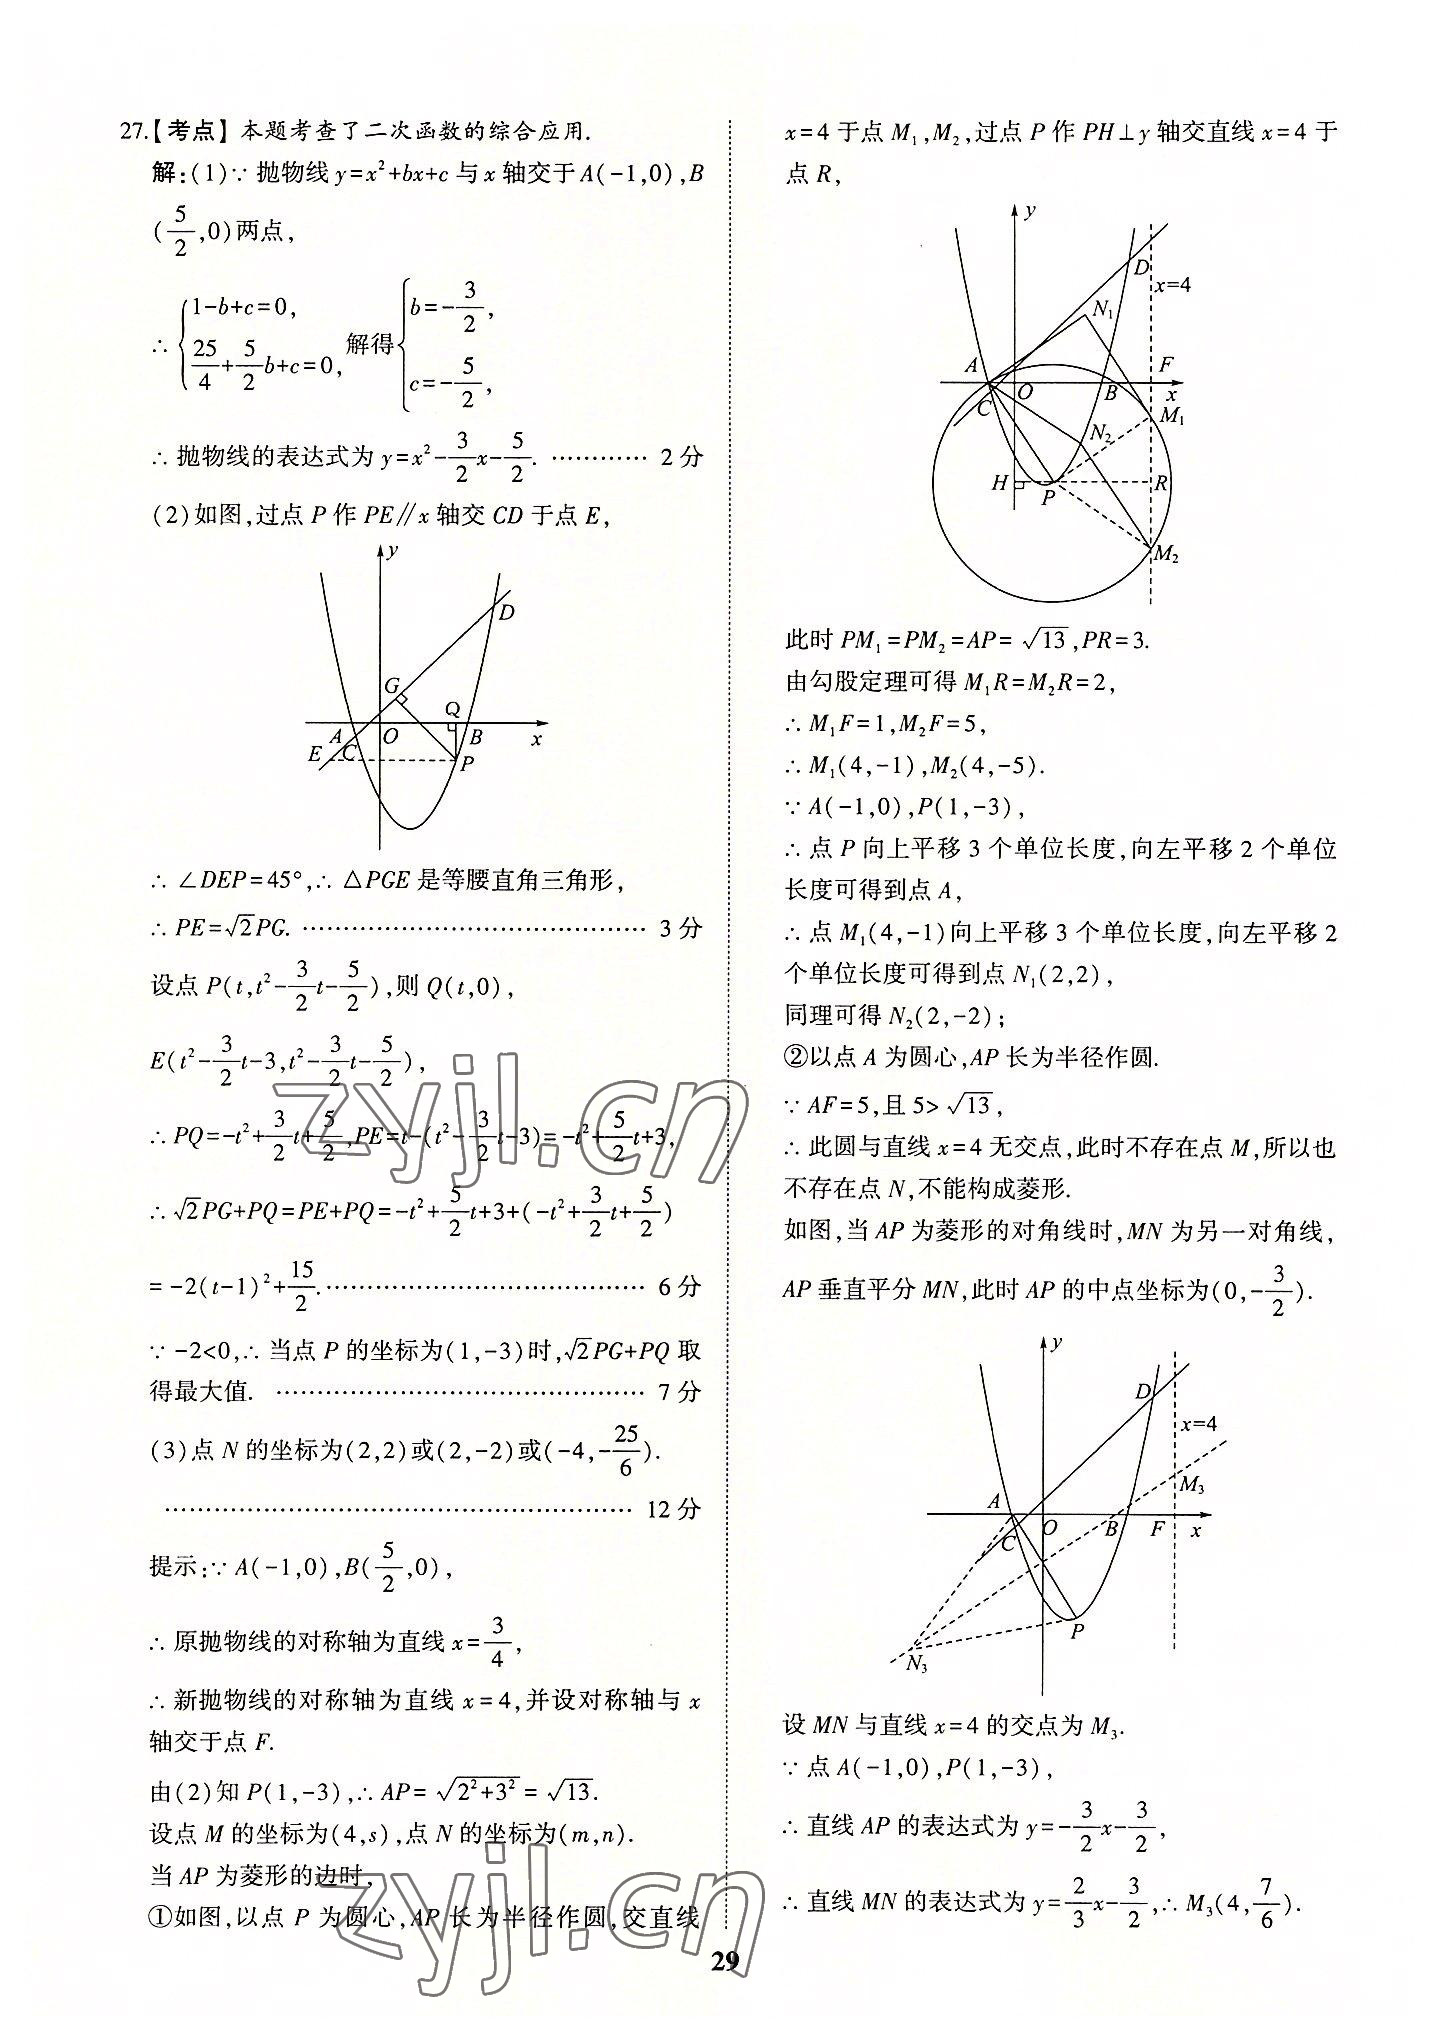 27.【考点】本题考查了二次函数的综合应用.
解:(1)∵ 抛物线 y=x²+bx+c 与 x 轴交于 A(-1,0),B
(5/2,0)两点,
∴ {1-b+c=0, 25/4+5/2b+c=0, 解得{b=-3/2, c=-5/2,
∴ 抛物线的表达式为 y=x²-3/2x-5/2. ………… 2 分
(2)如图,过点 P 作 PE∥x 轴交 CD 于点 E,
y
D
G
Q
A O B x
E C P
∴ ∠DEP=45°,∴ △PGE 是等腰直角三角形,
∴ PE=√2PG. …………………………………… 3 分
设点 P(t,t²-3/2t-5/2),则 Q(t,0),
E(t²-3/2t-3,t²-3/2t-5/2),
∴ PQ=-t²+3/2t+5/2,PE=t-(t²-3/2t-3)=-t²+5/2t+3,
∴ √2PG+PQ=PE+PQ=-t²+5/2t+3+(-t²+3/2t+5/2)
=-2(t-1)²+15/2. ………………………………… 6 分
∵ -2<0,∴ 当点 P 的坐标为(1,-3)时,√2PG+PQ 取
得最大值. ……………………………………… 7 分
(3)点 N 的坐标为(2,2)或(2,-2)或(-4,-25/6).
………………………………………………… 12 分
提示:∵ A(-1,0),B(5/2,0),
∴ 原抛物线的对称轴为直线 x=3/4,
∴ 新抛物线的对称轴为直线 x=4,并设对称轴与 x
轴交于点 F.
由(2)知 P(1,-3),∴ AP=√(2²+3²)=√13.
设点 M 的坐标为(4,s),点 N 的坐标为(m,n).
当 AP 为菱形的边时,
①如图,以点 P 为圆心,AP 长为半径作圆,交直线
x=4 于点 M₁,M₂,过点 P 作 PH⊥y 轴交直线 x=4 于
点 R,
y
D
x=4
N₁
A F
C O B x
M₁
N₂
H P R
M₂
此时 PM₁=PM₂=AP=√13,PR=3.
由勾股定理可得 M₁R=M₂R=2,
∴ M₁F=1,M₂F=5,
∴ M₁(4,-1),M₂(4,-5).
∵ A(-1,0),P(1,-3),
∴ 点 P 向上平移 3 个单位长度,向左平移 2 个单位
长度可得到点 A,
∴ 点 M₁(4,-1)向上平移 3 个单位长度,向左平移 2
个单位长度可得到点 N₁(2,2),
同理可得 N₂(2,-2);
②以点 A 为圆心,AP 长为半径作圆.
∵ AF=5,且 5>√13,
∴ 此圆与直线 x=4 无交点,此时不存在点 M,所以也
不存在点 N,不能构成菱形.
如图,当 AP 为菱形的对角线时,MN 为另一对角线,
AP 垂直平分 MN,此时 AP 的中点坐标为(0,-3/2).
y
D
x=4
M₃
A
C O B F x
P
N₃
设 MN 与直线 x=4 的交点为 M₃.
∵ 点 A(-1,0),P(1,-3),
∴ 直线 AP 的表达式为 y=-3/2x-3/2,
∴ 直线 MN 的表达式为 y=2/3x-3/2,∴ M₃(4,7/6).
29
zyjl.cn
zyjl.cn